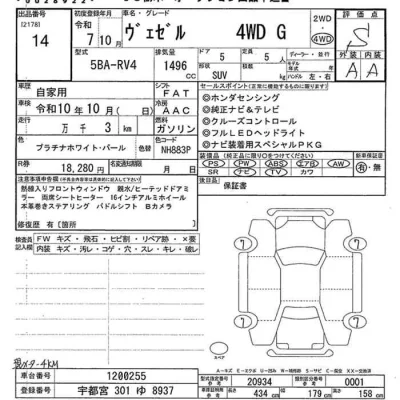 出品番号
[2178]
14
初度登録年月
令和
7年10月
車名・グレード
ヴェゼル 4WD G
2WD
4WD
評価点
S
型式
5BA-RV4
排気量
1496
ドア
5
形状
SUV
定員
5人
ディーラー・並行
ハンドル 左・右
外装 内装
A A
車歴
自家用
車検
令和10年10月(日)
走行
万 千 3 km
色
プラチナホワイト・パール
シフト
FAT
冷房
AAC
燃料
ガソリン
色替
カラーNo.
NH883P
R券
18,280円
名変期限
月 日
セールスポイント
◎ホンダセンシング
◎純正ナビ&テレビ
◎クルーズコントロール
◎フルLEDヘッドライト
◎ナビ装着用スペシャルPKG
PS PW ABS エアB AW
SR ナビ TV カワ
新車保証書
有・無
後日品
保証書
注意事項申告欄
熱線入りフロントウィンドウ 親水/ヒーテッドドアミ
ラー 両席シートヒーター 16インチアルミホイール
本革巻きステアリング パドルシフト Bカメラ
修復歴 有 [箇所
検査員報告
FW キズ・飛石・ヒビ割・リペア跡・×要
内装 キズ・汚レ・コゲ・穴・スレ・切レ・ヤブレ
スペア
4KM
車台番号
1200255
登録番号
宇都宮 301 ゆ 8937
型式指定番号
20934
類別区分番号
0001
長さ 434 cm
幅 179 cm
高さ 158 cm